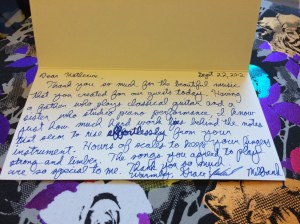 Sept 22, 2012
Dear
Thank you so much for the beautiful music
that you created for our guests today. Having
a father who plays classical guitar and a
sister who studied piano performance, I know
just how much hard work lies behind the notes
that seem to rise effortlessly from your
instrument. Hours of scales to keep your fingers
strong and limber. The songs you agreed to play
are so special to me. Thank you so much.
Warmly, Grace